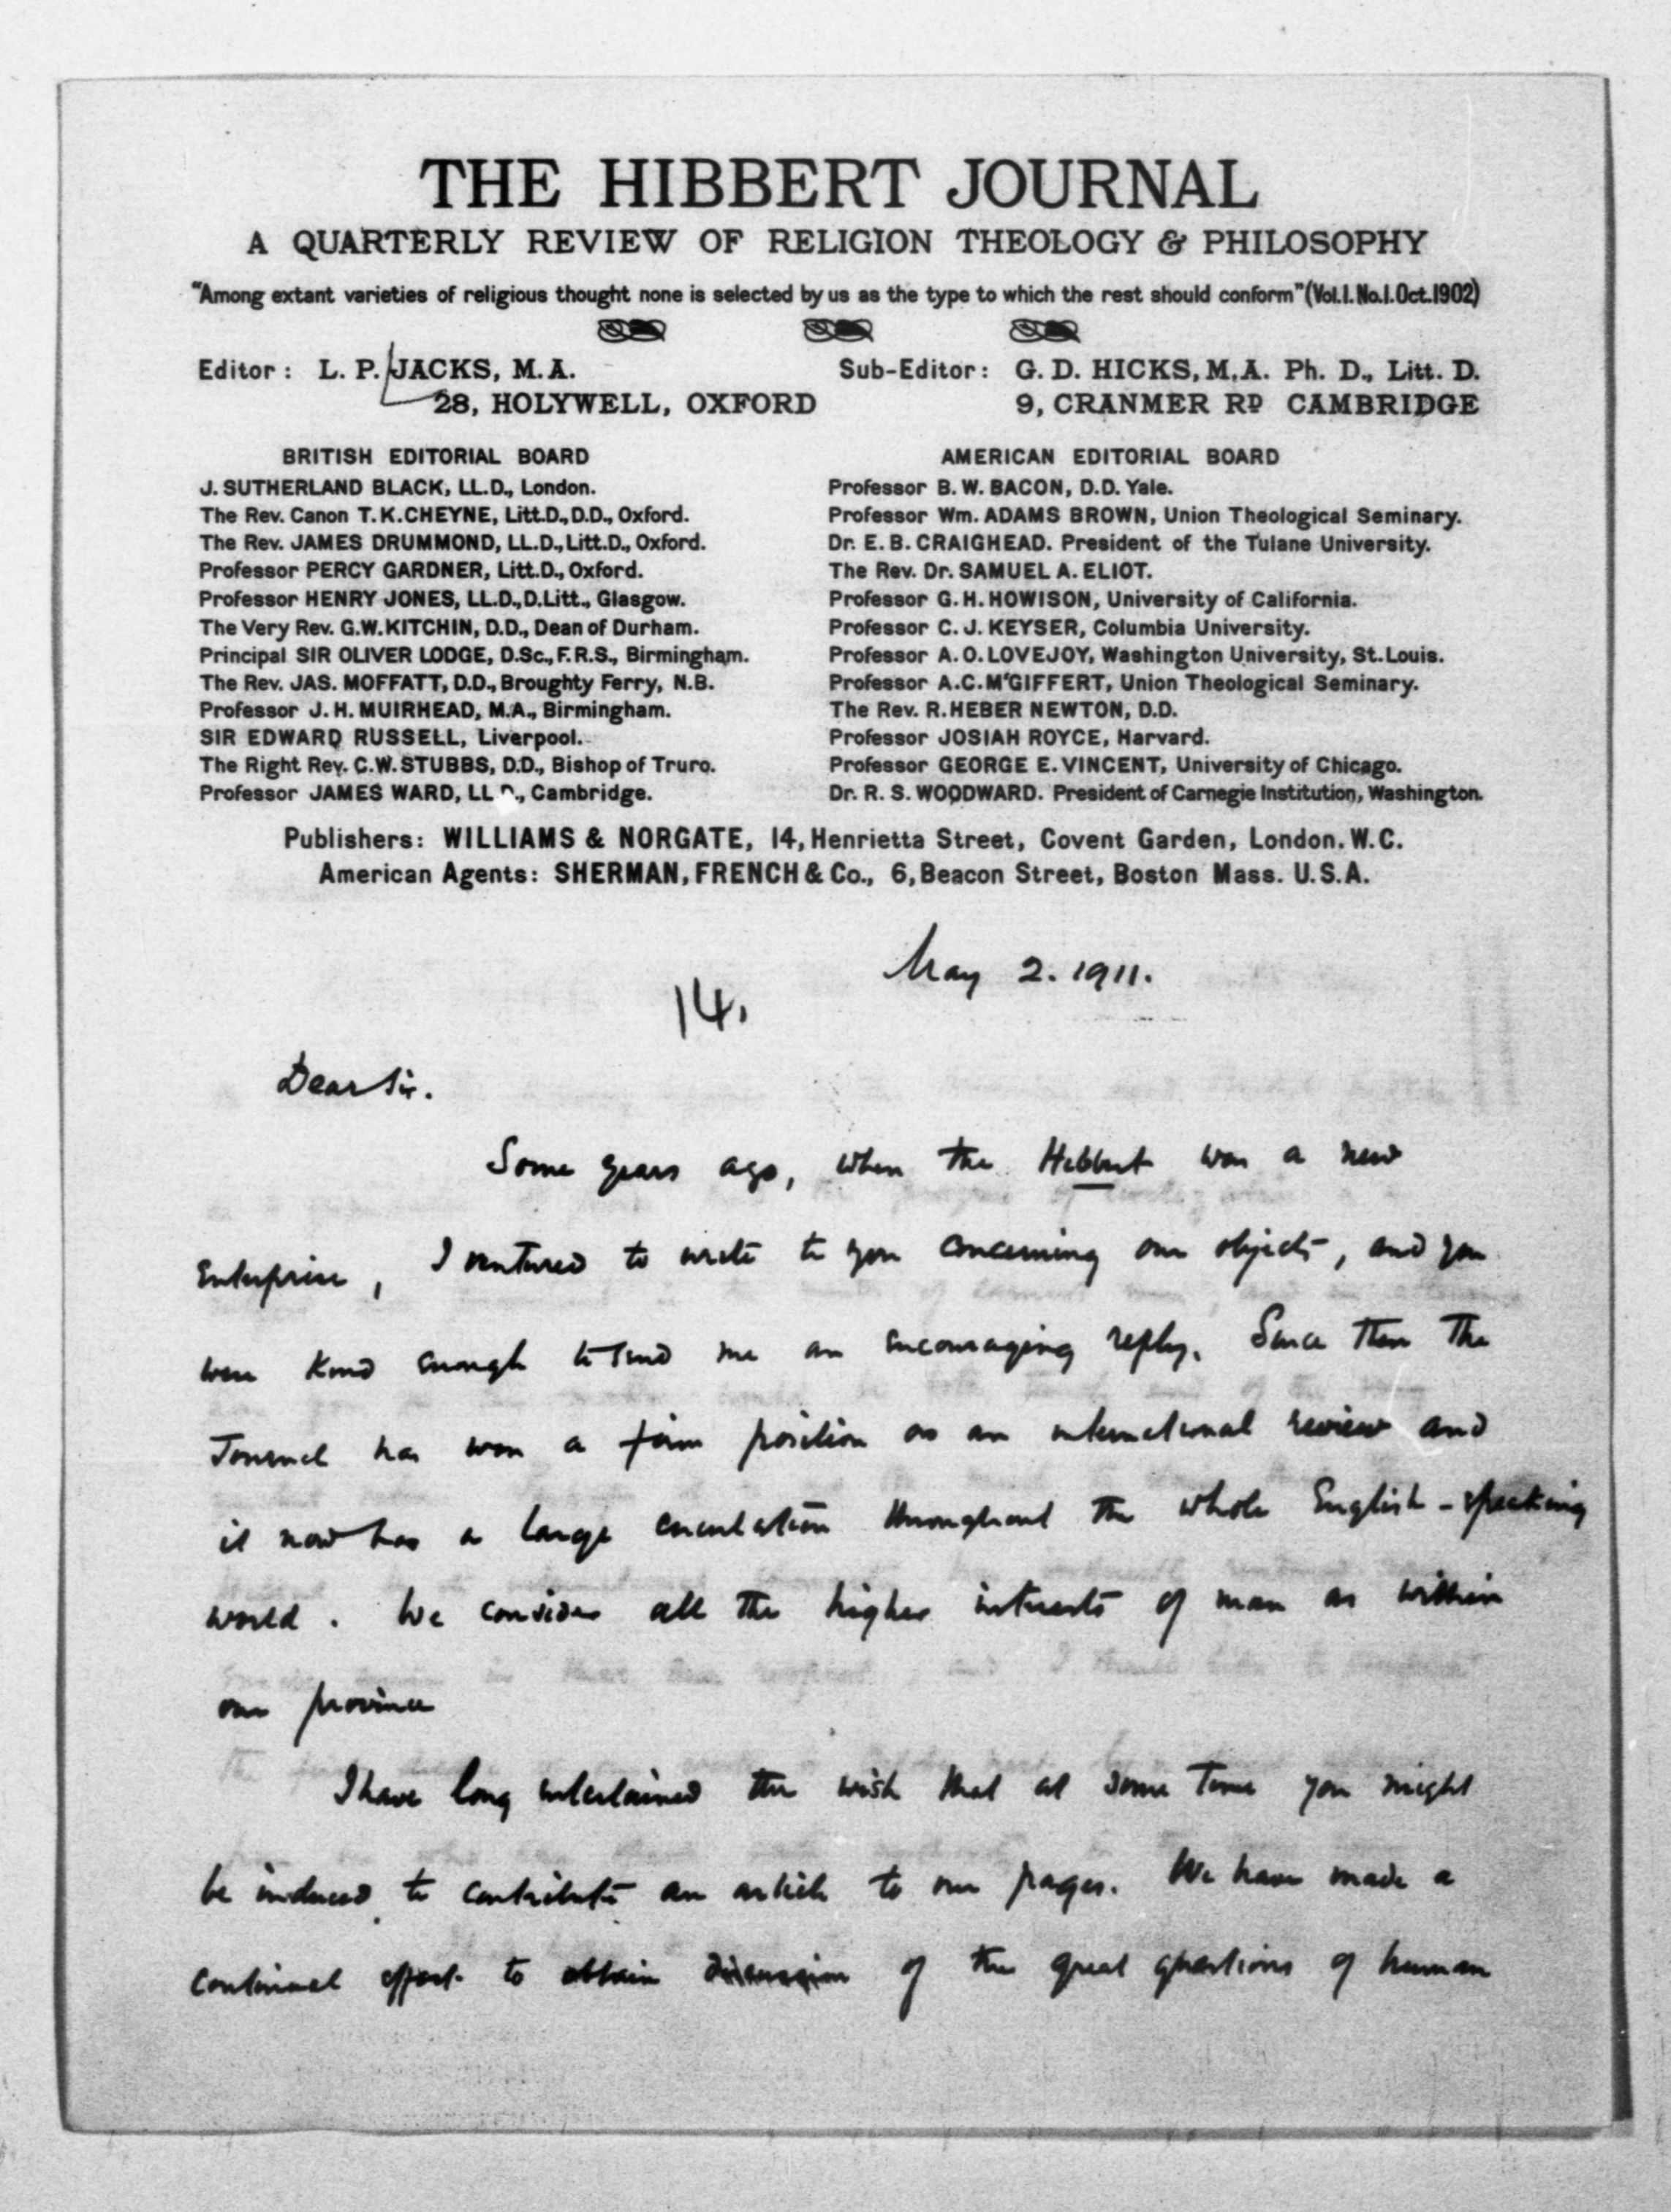 THE HIBBERT JOURNAL
A QUARTERLY REVIEW OF RELIGION THEOLOGY & PHILOSOPHY
"Among extant varieties of religious thought none is selected by us as the type to which the rest should conform" (Vol.I. No.I. Oct. 1902)
Editor: L. P. JACKS, M.A.
28, HOLYWELL, OXFORD
Sub-Editor: G. D. HICKS, M.A. Ph. D., Litt. D.
9, CRANMER RD CAMBRIDGE
BRITISH EDITORIAL BOARD
J. SUTHERLAND BLACK, LL.D., London.
The Rev. Canon T. K. CHEYNE, Litt.D., D.D., Oxford.
The Rev. JAMES DRUMMOND, LL.D., Litt.D., Oxford.
Professor PERCY GARDNER, Litt.D., Oxford.
Professor HENRY JONES, LL.D., D.Litt., Glasgow.
The Very Rev. G.W. KITCHIN, D.D., Dean of Durham.
Principal SIR OLIVER LODGE, D.Sc., F.R.S., Birmingham.
The Rev. JAS. MOFFATT, D.D., Broughty Ferry, N.B.
Professor J. H. MUIRHEAD, M.A., Birmingham.
SIR EDWARD RUSSELL, Liverpool.
The Right Rev. C.W. STUBBS, D.D., Bishop of Truro.
Professor JAMES WARD, LL.D., Cambridge.
AMERICAN EDITORIAL BOARD
Professor B. W. BACON, D.D. Yale.
Professor Wm. ADAMS BROWN, Union Theological Seminary.
Dr. E. B. CRAIGHEAD. President of the Tulane University.
The Rev. Dr. SAMUEL A. ELIOT.
Professor G. H. HOWISON, University of California.
Professor C. J. KEYSER, Columbia University.
Professor A. O. LOVEJOY, Washington University, St. Louis.
Professor A.C. M'GIFFERT, Union Theological Seminary.
The Rev. R. HEBER NEWTON, D.D.
Professor JOSIAH ROYCE, Harvard.
Professor GEORGE E. VINCENT, University of Chicago.
Dr. R. S. WOODWARD. President of Carnegie Institution, Washington.
Publishers: WILLIAMS & NORGATE, 14, Henrietta Street, Covent Garden, London. W.C.
American Agents: SHERMAN, FRENCH & Co., 6, Beacon Street, Boston Mass. U.S.A.
May 2. 1911.
14.
Dear Sir.
Some years ago, when the Hibbert was a new
enterprise, I ventured to write to you concerning our objects, and you
were kind enough to send me an encouraging reply. Since then the
Journal has won a firm position as an international review and
it now has a large circulation throughout the whole English-speaking
world. We consider all the higher interests of man as within
our province
I have long entertained the wish that at some time you might
be induced to contribute an article to our pages. We have made a
continual effort to obtain discussion of the great questions of human